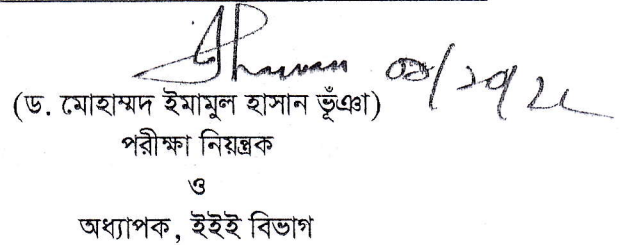 (ড. মোহাম্মদ ইমামুল হাসান ভূঁঞা)
পরীক্ষা নিয়ন্ত্রক
ও
অধ্যাপক, ইইই বিভাগ